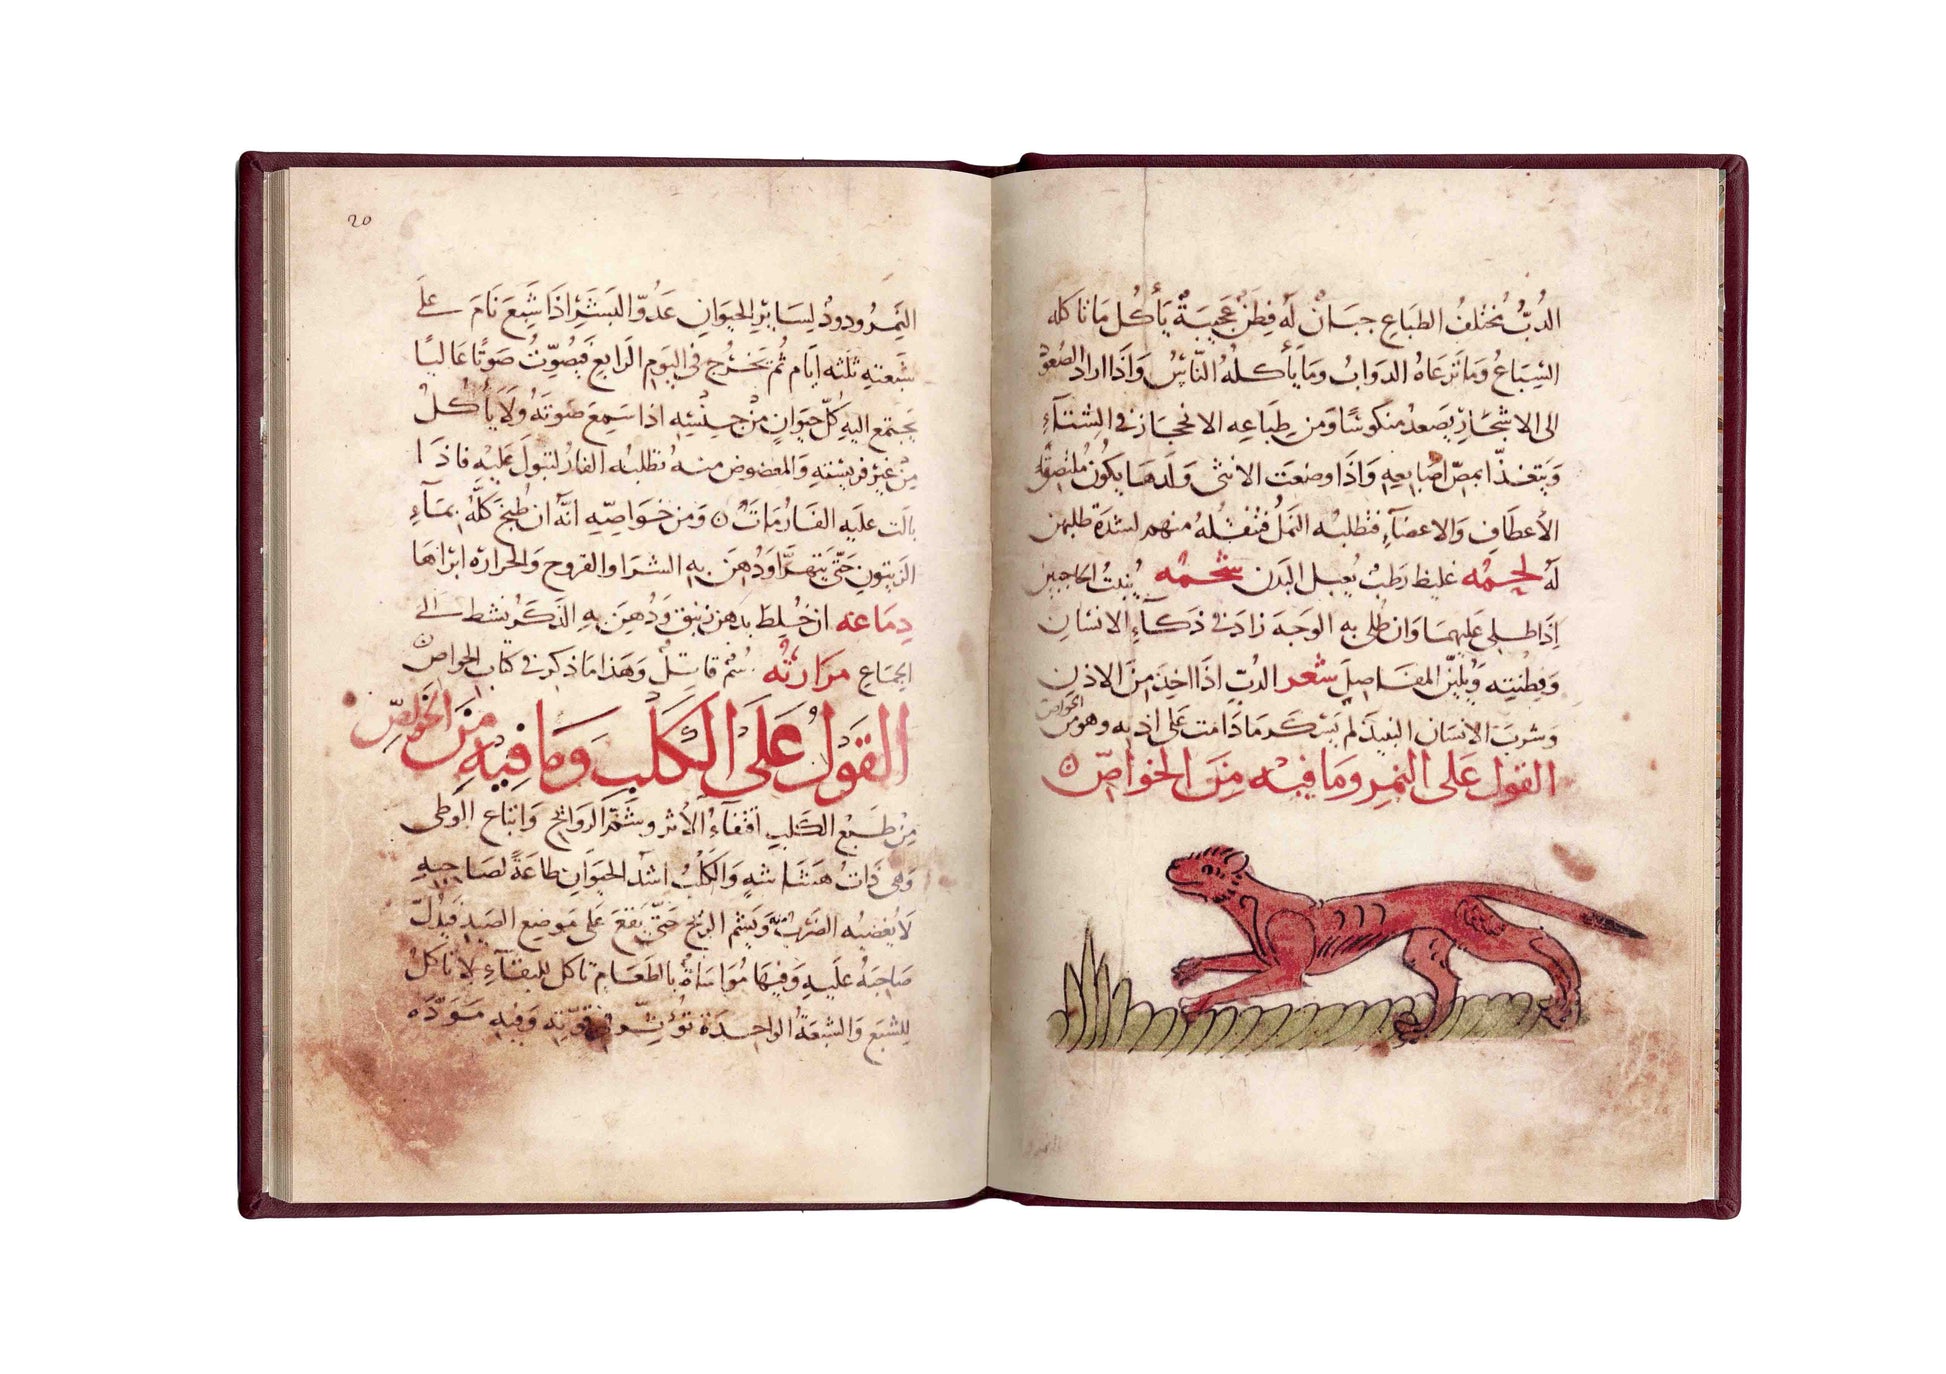 الدُبُّ مُختلفُ الطباعِ جبَانٌ لَه فِطَنٌ عَجيبَةٌ يَأكُل مَا تاكله
السِّبَاعُ وَمَا تَرعَاهُ الدوابُ وَمَا يَأكلهُ النّاسُ وَاذَا اراد الصُعودَ
الى الاشجَارِ يَصعَدُ منكوسًا وَمن طِبَاعِه الانحجَازُ فى الشتآءِ
وَيَتغذّا بمصّ اصَابعِهِ وَاذَا وضعَت الانثى وَلَدهَا يكُونُ مُلتصِقَ
الأعطَافِ وَالاعضآءِ فتطلبُه النملُ فتقتلُهُ منهم لشدّة طلبهن
لَهُ لحمُه غليظ رَطبٌ يُعبل البَدن شحمُه يُنبتُ الحَاجبين
إذَا طلى عليهمَا وَان طلى به الوجهَ زادَ فى ذكآءِ الانسَانِ
وَفِطنتِه وَيُليّنُ المفَاصِلَ شعر الدبِّ اذَا اخِذَ منَ الاذنِ
وَشربَ الانسَان النبيذَ لم يَسكَر مَا دَامت على اذنِه وهو من الخواص
القول على النمرِ وَمَا فيهِ مِنَ الخواصّ
20
النَّمرُ ودودٌ لِسَايرِ الحيوَانِ عَدُوّ البَشَرِ اذَا شَبِعَ نَامَ على
شَبعتهِ ثلثه ايّام ثُمّ يَخرُج فى اليَومِ الرَابعِ فَيُصوّتُ صَوتًا عَاليًا
يَجتمع اليهِ كلّ حيَوَانٍ منْ جِنسِه اذا سَمِعَ صَوتَه وَلَا يَأكلُ
مِنْ غَيْرِ فريستهِ وَالمعضوض منهُ تطلبُه الفَار لتبولَ عَليْهِ فاذَا
بالَت عليَهِ الفَار مَاتَ وَمن خَوَاصِّهِ انّهُ ان طُبخَ كلّهُ بمَآءِ
الزيتونِ حَتّى يَتهَرَّا وَدُهنَ بهِ الشرَا والقروح وَالحراره ابرَاهَا
دِمَاغه ان خُلِطَ بدهن زنبق وَدُهِنَ بهِ الذكَر نشط الى
الجمَاعِ مرَارتُه سُمّ قاتِلٌ وَهَذا مَا ذكر فى كتاب الخوَاصّ
القَولُ عَلَى الكَلبِ وَمَا فِيهِ مِنَ الخَواصّ
مِنْ طبْع الكَلبِ اقتفآءُ الأثر وشمّ الرَوَايح وَاتباع الوطى
وهى ذَاتُ هشَاشهٍ وَالكَلبُ اشدُّ الحيَوَانِ طَاعَةً لصَاحبهِ
لَا يُغضبُه الضربُ وَيَشم الريح حَتّى يَقعَ عَلى مَوضِعِ الصَيدِ فَيَدُلّ
صَاحبَهُ علَيهِ وَفيهَا مُوَاسَاةٌ بالطعَامِ تاكل للبقَآءِ لا تاكلُ
للشبَع وَالشبعَةُ الواحدَة تُؤثّر فى قوّتِهِ وَفيهِ مَوَدّه